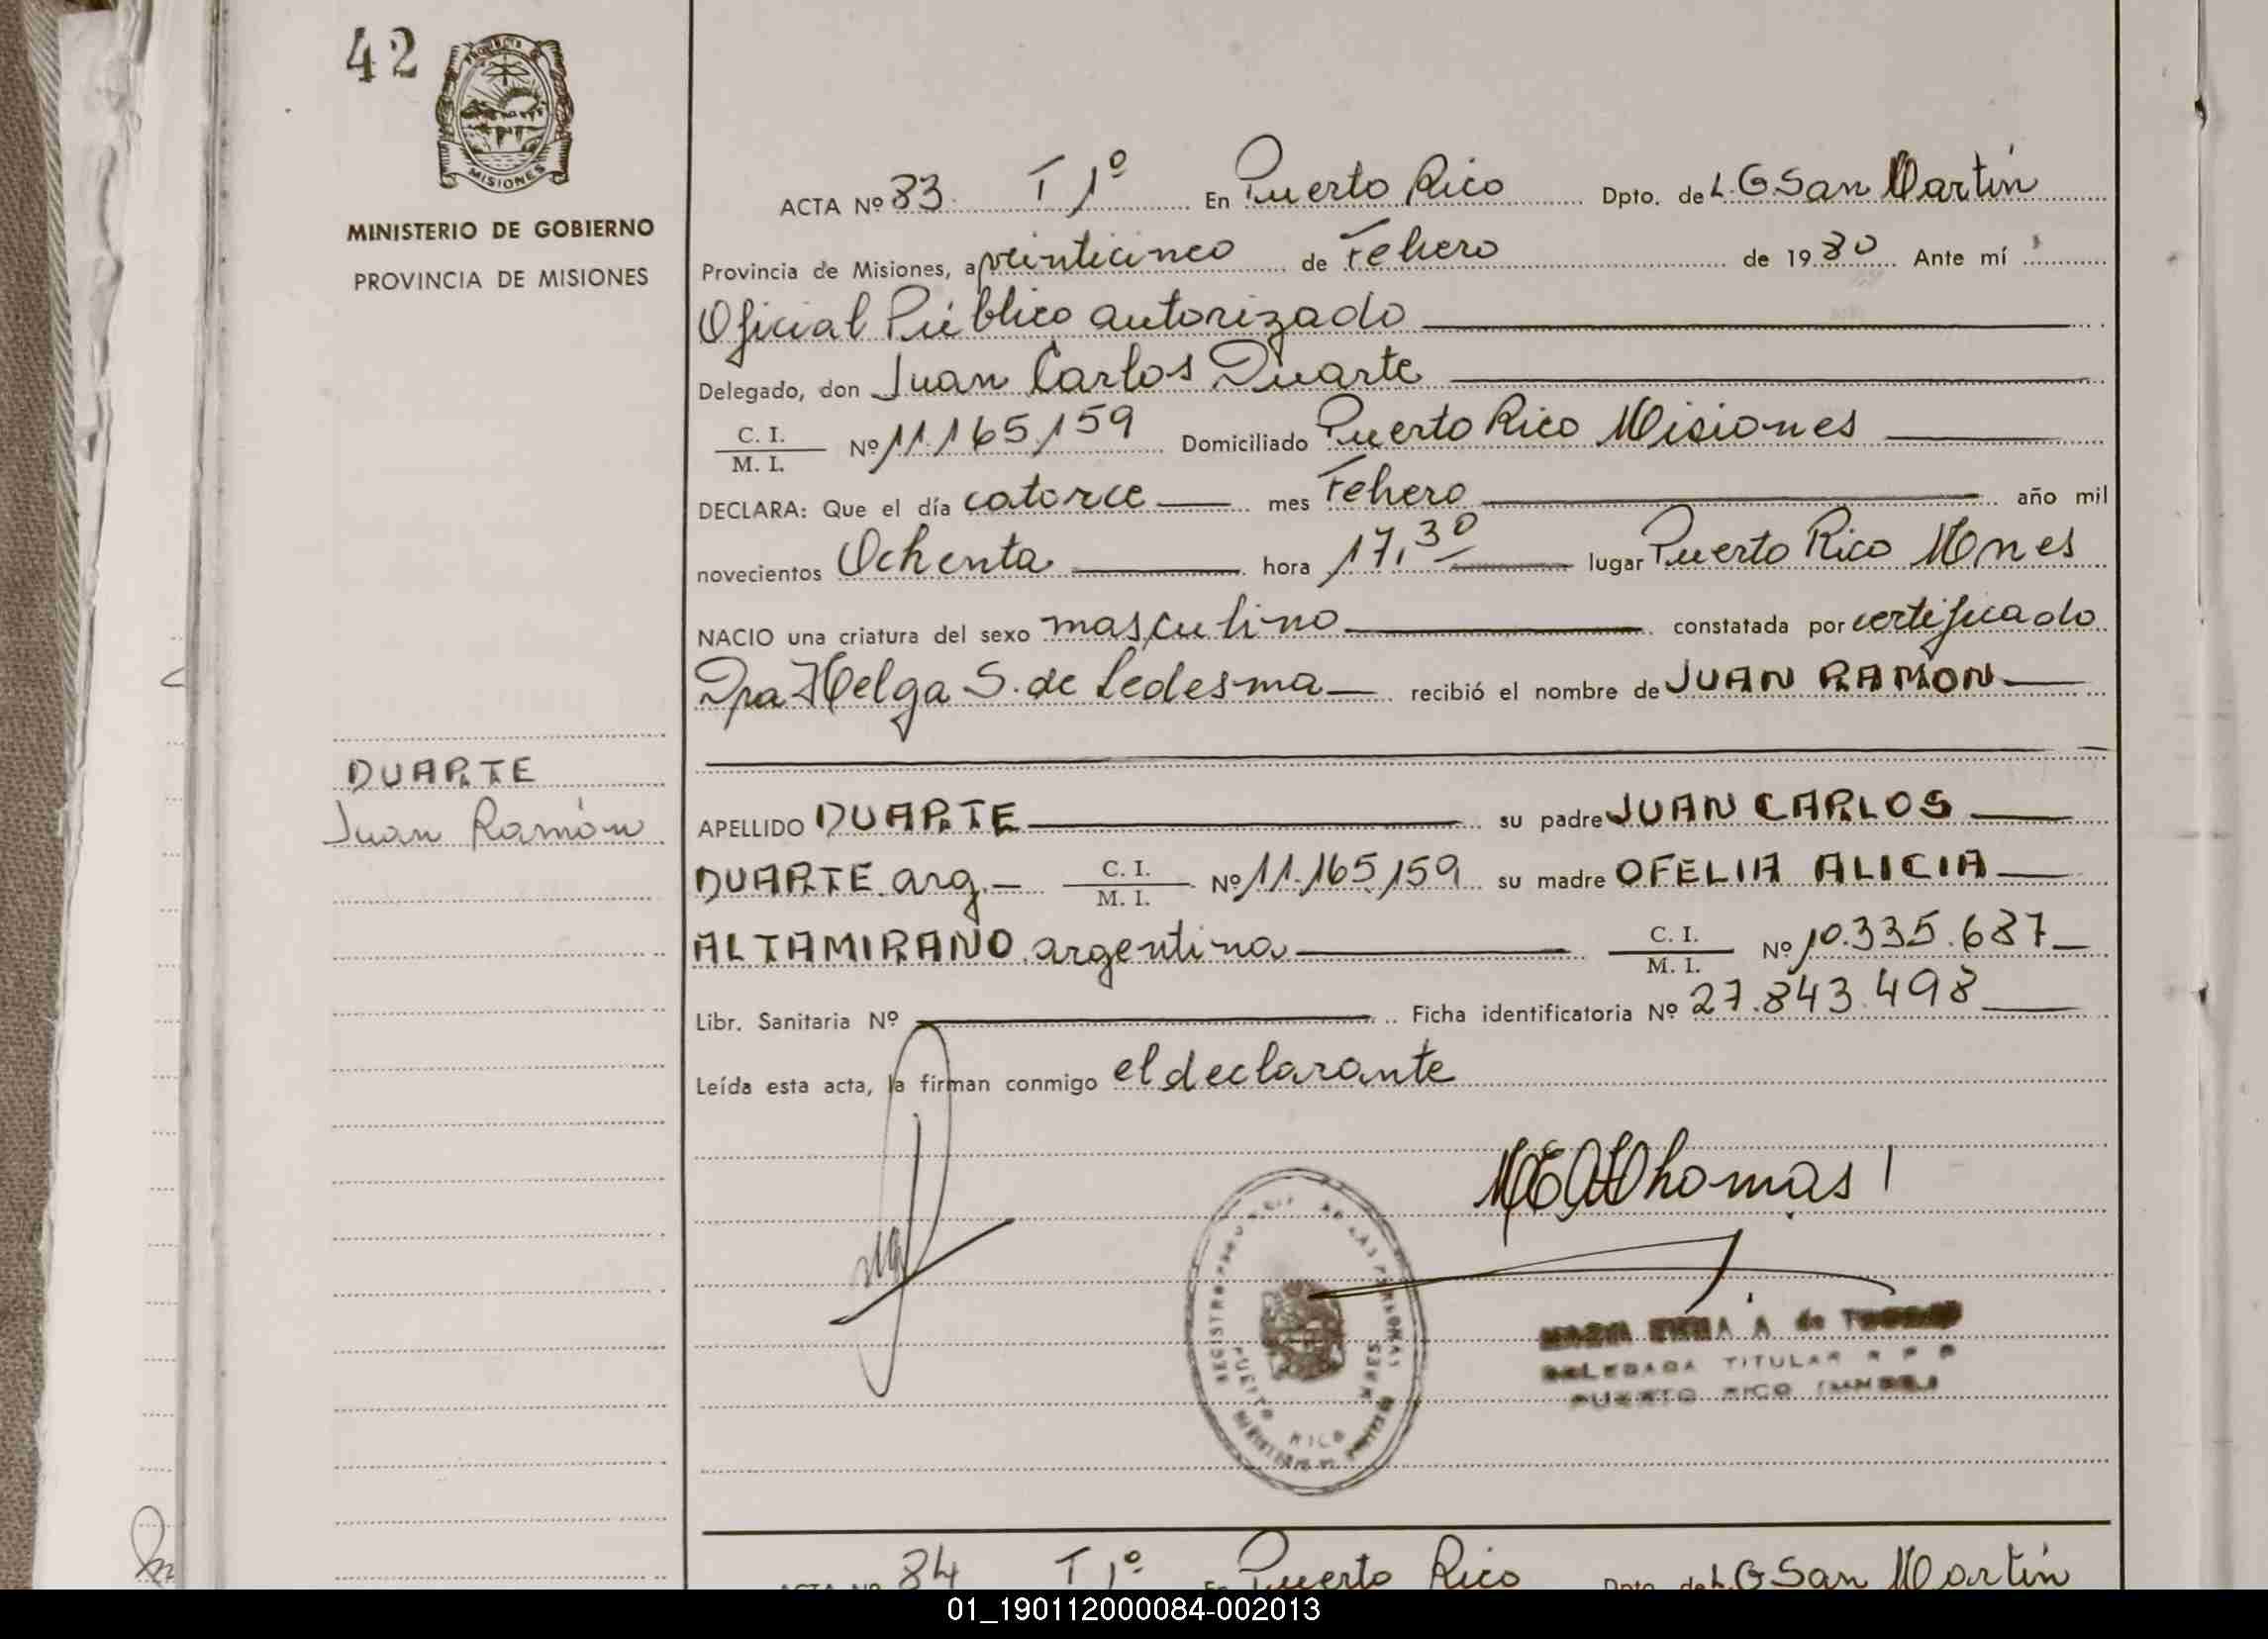 42
PROVINCIA DE
MISIONES
MINISTERIO DE GOBIERNO
PROVINCIA DE MISIONES
DUARTE
Juan Ramón
ACTA Nº 83 T 1º En Puerto Rico Dpto. de L.G San Martín
Provincia de Misiones, a veinticinco de Febrero de 1980 Ante mí
Oficial Público autorizado
Delegado, don Juan Carlos Duarte
C. I. / M. I. Nº 11.165.159 Domiciliado Puerto Rico Misiones
DECLARA: Que el día catorce mes Febrero año mil
novecientos Ochenta hora 17,30 lugar Puerto Rico Mnes
NACIO una criatura del sexo masculino constatada por certificado
Dra Helga S. de Ledesma recibió el nombre de JUAN RAMON
APELLIDO DUARTE su padre JUAN CARLOS
DUARTE arg. C. I. / M. I. Nº 11.165.159 su madre OFELIA ALICIA
ALTAMIRANO argentina C. I. / M. I. Nº 10.335.687
Libr. Sanitaria Nº Ficha identificatoria Nº 27.843.498
Leída esta acta, la firman conmigo el declarante
DELEGADA TITULAR R P P
PUERTO RICO
ACTA Nº 84 T 1º En Puerto Rico Dpto. de L G San Martín
01_190112000084-002013